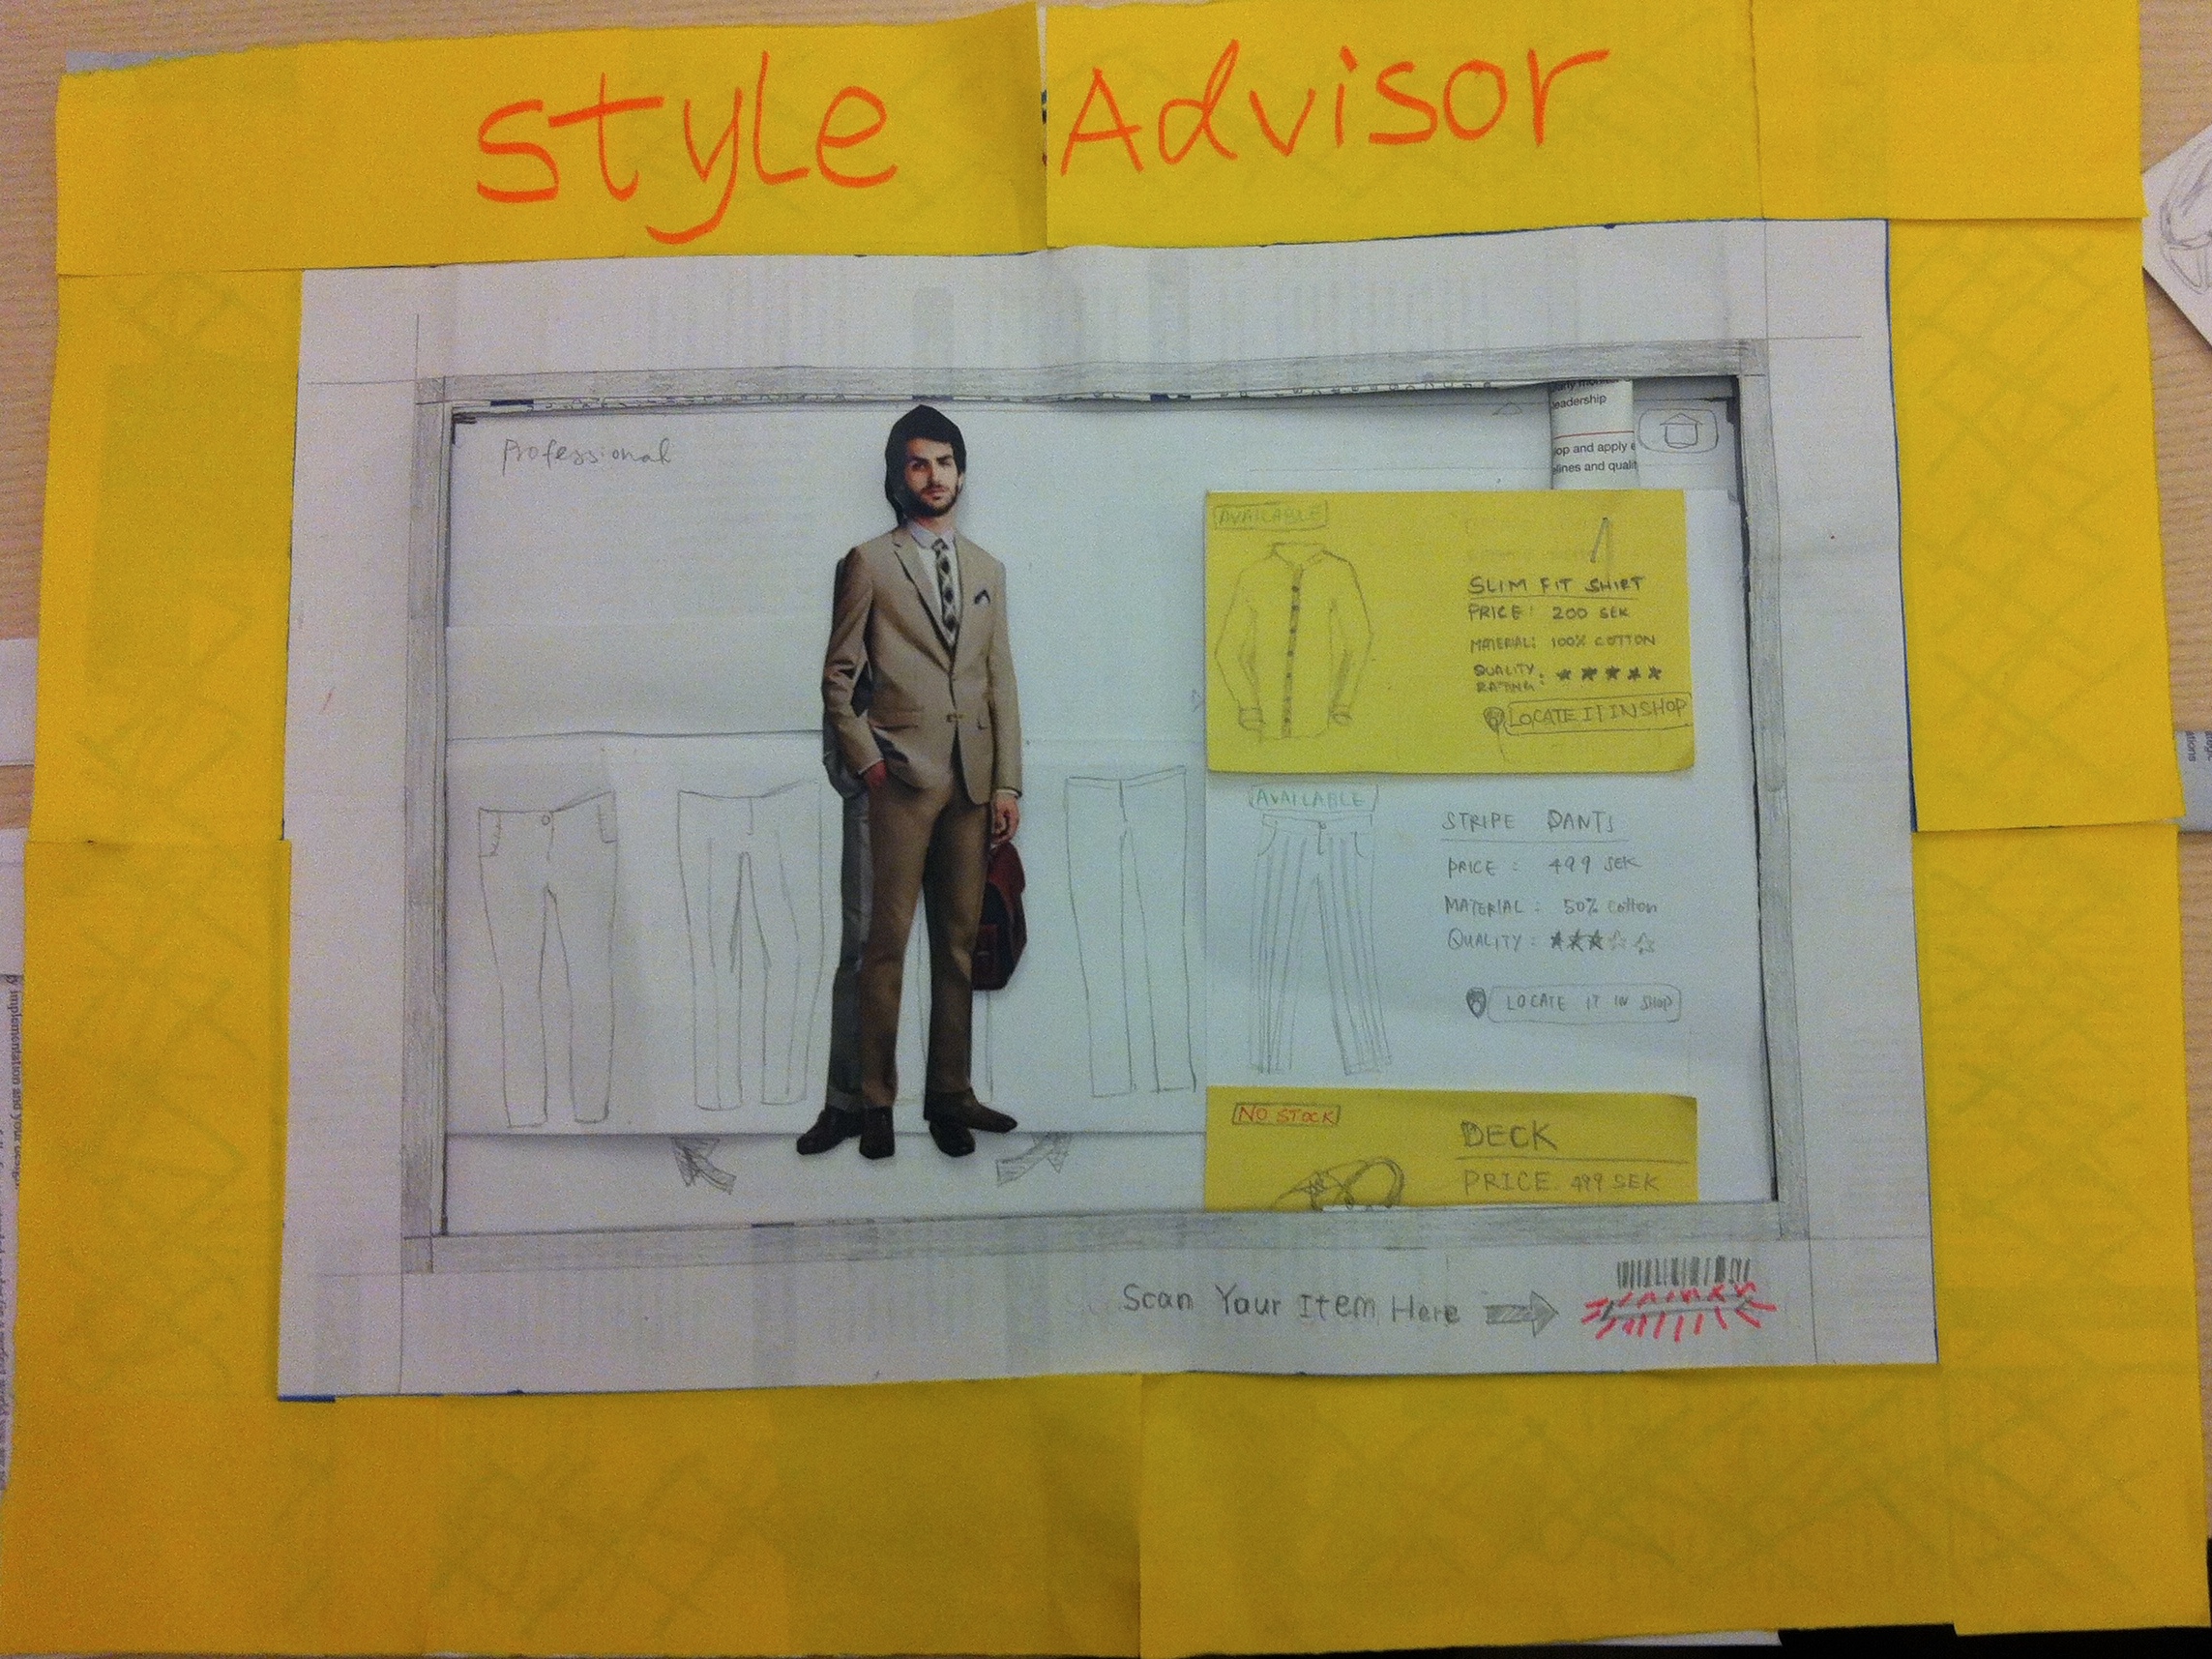 Style Advisor
Professional
leadership
op and apply
lines and quali
AVAILABLE
SLIM FIT SHIRT
PRICE: 200 SEK
MATERIAL: 100% COTTON
QUALITY
RATING: ★★★★★
LOCATE IT IN SHOP
AVAILABLE
STRIPE PANTS
PRICE : 499 SEK
MATERIAL : 50% Cotton
QUALITY : ★★★☆☆
LOCATE IT IN SHOP
NO STOCK
DECK
PRICE 499 SEK
Scan Your Item Here